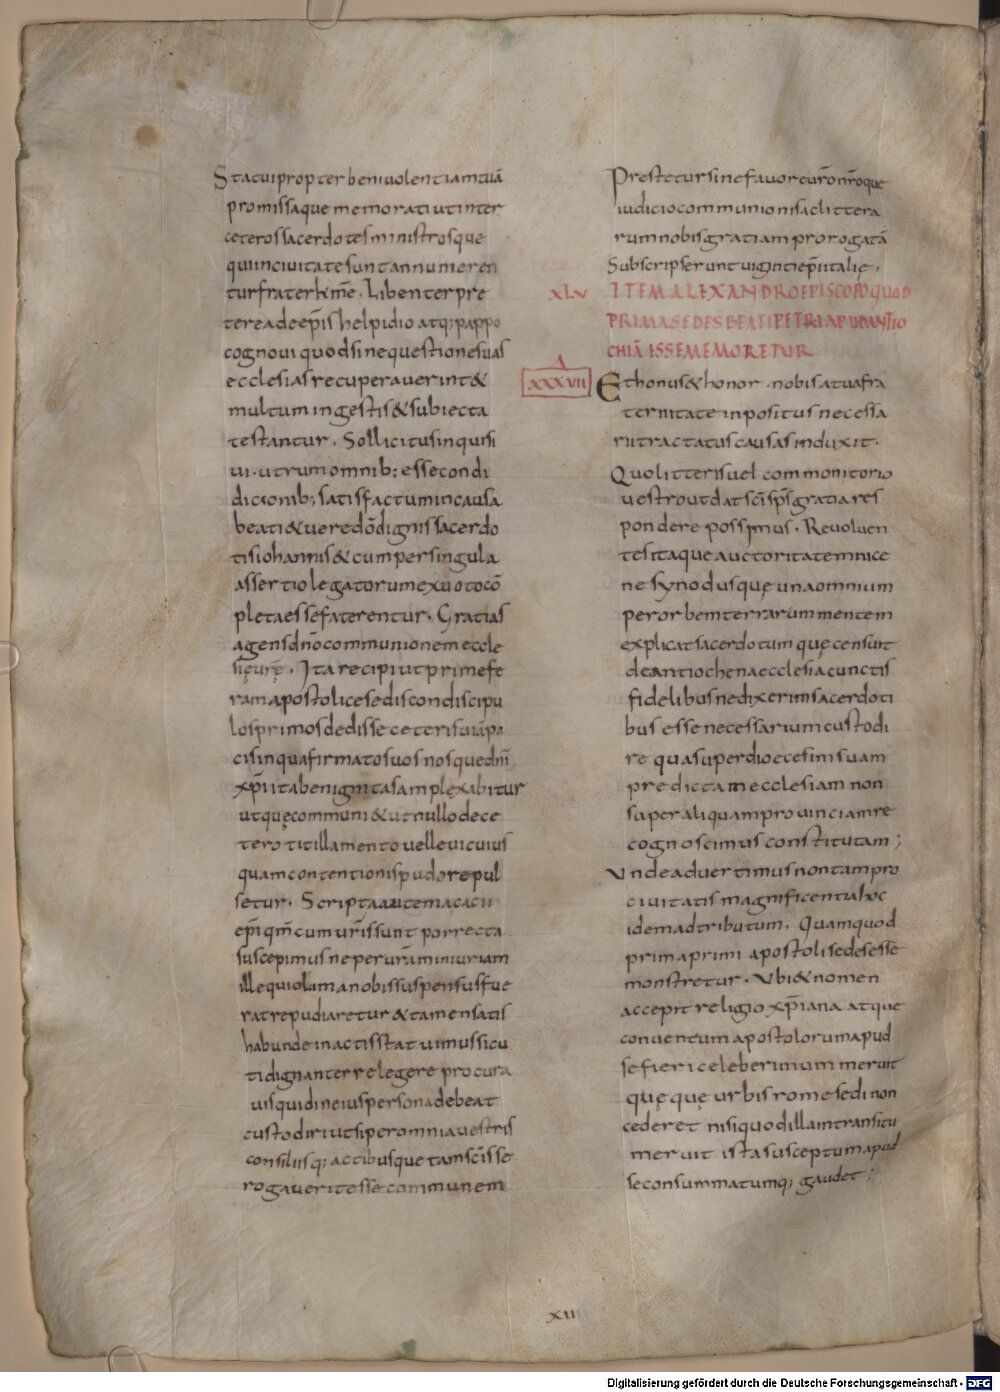 Statui propter beniuolentiam tuā
promissaque memorati ut inter
ceteros sacerdotes ministrosque
qui in ciuitate sunt annumeren
tur frater kr̄me. Libenter pre
terea de ep̄is helpidio atq; pappo
cognoui quod sine questione suas
ecclesias recuperauerint &
multum in gestis & subiecta
testantur. Sollicitus inquisi
ui. utrum omnib; esse condi
dicionib; satisfactum in causa
beati & uere dō digni sacerdo
tis iohannis & cum per singula
assertio legatorum ex uoto cō
pleta esse faterentur. Gratias
agens dn̄o communionem eccle
sięurę. Ita recipi ut prime fe
ram apostolice sedis condiscipu
los primos dedisse ceteris uiā pa
cis in qua firmatos uos nosque dn̄i
xp̄i ita benignitas amplexabitur
ut quę communi & ut nullo de ce
tero titillamento uelleuicuius
quam contentionis pudore pul
setur. Scripta autem acacii
ep̄i qm̄ cum ur̄is sunt porrecta
suscepimus ne per urām iniuriam
ille qui olim a nobis suspensus fue
rat repudiaretur & tamen satis
habunde in actis statuimus sicu
ti dignanter relegere procura
uis quid in eius persona debeat
custodiri ut si per omnia uestris
consiliisq; actibusque tam sc̄is se
rogauerit esse communem
Prestetur sine fauore cur̄o nr̄oque
iudicio communionis ac littera
rum nobis gratiam prorogatā
Subscripserunt uiginti ep̄i italię.
XLV ITEM ALEXANDRO EPISCOPO QUOD
PRIMA SEDES BEATI PETRI APUD ANTIO
CHIĀ ISSE MEMORETUR
A
XXXVII Et honus & honor nobis a tua fra
ternitate inpositus necessa
rii tractatus causas induxit.
Quo litteris uel commonitorio
uestro ut dat sc̄i sp̄s gratia res
pondere possimus. Reuoluen
tes itaque auctoritatem nice
ne synodus quę una omnium
per orbem terrarum mentem
explicat sacerdotum quę censuit
de antiochena ecclesia cunctis
fidelibus ne dixerim sacerdoti
bus esse necessarium custodi
re qua super dioecesim suam
predictam ecclesiam non
super aliquam prouinciam re
cognoscimus constitutam;
Unde aduertimus non tam pro
ciuitatis magnificentia hoc
idem adtributum. Quam quod
prima primi apostoli sedes esse
monstretur. Ubi & nomen
accepit religio xp̄iana atque
conuentum apostolorum apud
se fieri celeberimum meruit
quę quę urbis rome sedi non
cederet nisi quod illa in transitu
meruit ista susceptum apud
se consummatumq; gaudet;
XII
Digitalisierung gefördert durch die Deutsche Forschungsgemeinschaft - DFG